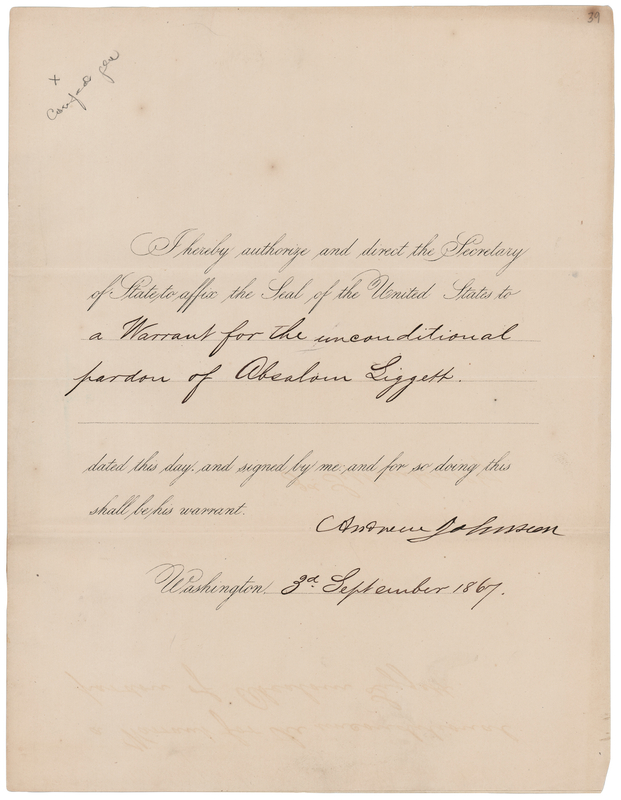 39
+
I hereby authorize and direct the Secretary
of State to affix the Seal of the United States to
a Warrant for the unconditional
pardon of Absalom Liggett.
dated this day, and signed by me; and for so doing this
shall be his warrant.
Andrew Johnson
Washington, 3d September 1867.